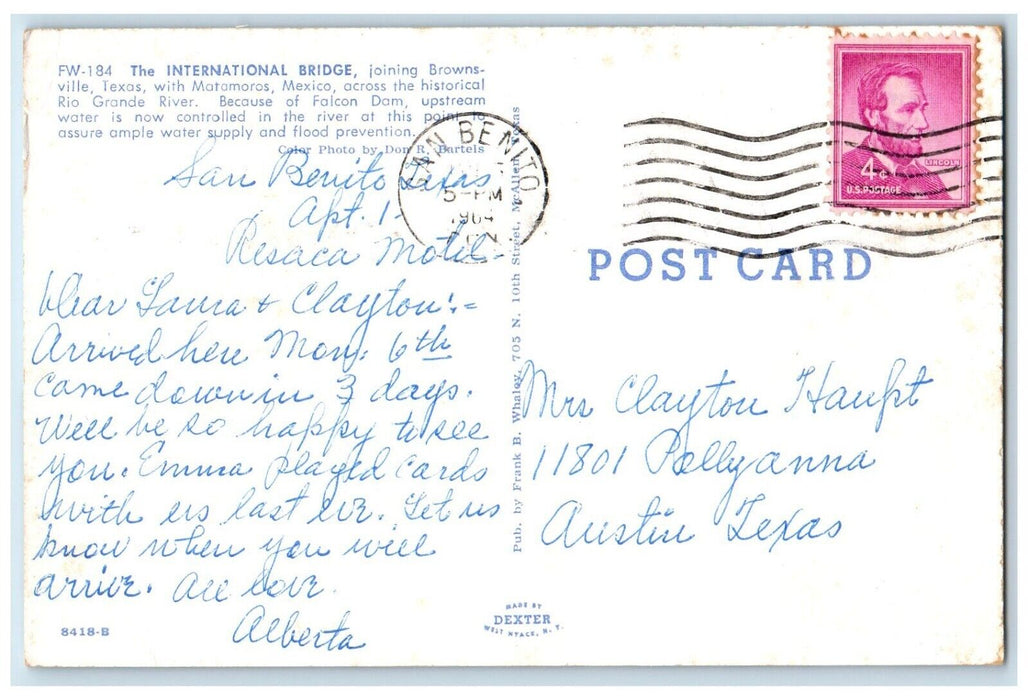 FW-184 The INTERNATIONAL BRIDGE, joining Browns-
ville, Texas, with Matamoros, Mexico, across the historical
Rio Grande River. Because of Falcon Dam, upstream
water is now controlled in the river at this point to
assure ample water supply and flood prevention.
Color Photo by Don R. Bartels
San Benito Texas
Apt. 1-
Resaca Motel-
Dear Laura & Clayton:-
Arrived here Mon. 6th
Came down in 3 days.
Will be so happy to see
you. Emma played cards
with us last eve. Let us
know when you will
arrive. All love.
Alberta
8418-B
Pub. by Frank B. Whaley, 705 N. 10th Street, McAllen, Texas
MADE BY
DEXTER
WEST NYACK, N. Y.
SAN BENITO
5-PM
1964
LINCOLN
4¢
U.S. POSTAGE
POST CARD
Mrs Clayton Haupt
11801 Pollyanna
Austin Texas